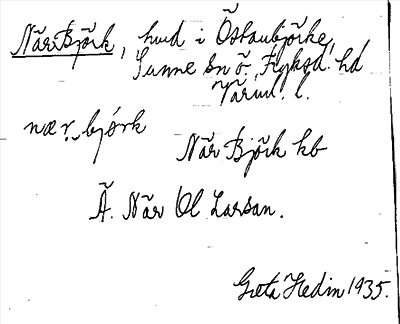 När Björk, hmd i Östanbjörke,
Sunne sn ö. Fryksd. hd
Värml. l.
næṛ. björk
När Björk kb
Ä. När Ol Larsan.
Greta Hedin 1935.